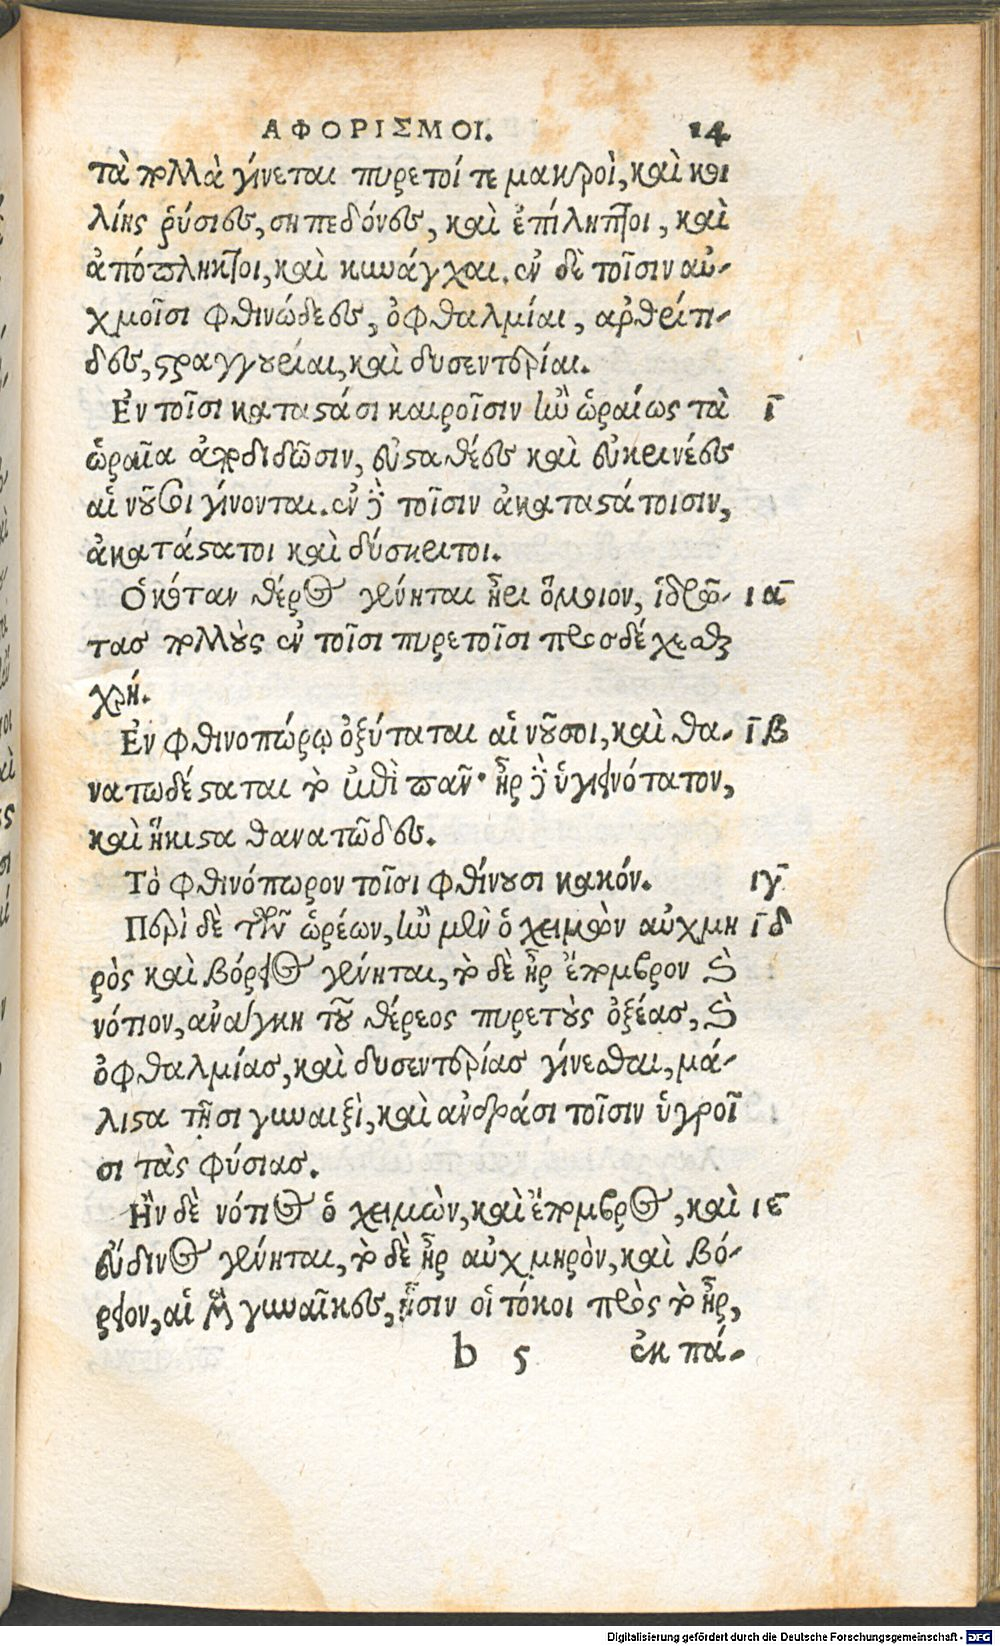 ΑΦΟΡΙΣΜΟΙ. 14
τὰ πολλὰ γίνεται πυρετοί τε μακροὶ, καὶ κοι
λίης ῥύσιες, σηπεδόνες, καὶ ἐπίληπτοι, καὶ
ἀπόπληκτοι, καὶ κυνάγχαι. ἐν δὲ τοῖσιν αὐ-
χμοῖσι φθινώδεες, ὀφθαλμίαι, ἀρθρίτι-
δες, στραγγουρίαι, καὶ δυσεντερίαι.
Ἐν τοῖσι καταστάσι καιροῖσιν ἢν ὡραίως τὰ ῑ
ὡραῖα ἀποδιδῶσιν, εὐσταθέες καὶ εὐκρινέες
αἱ νοῦσοι γίνονται. ἐν δὲ τοῖσιν ἀκαταστάτοισιν,
ἀκατάστατοι καὶ δύσκριτοι.
Ὁκόταν θέρος γένηται ἦρι ὅμοιον, ἱδρῶ- ιᾱ
τας πολλοὺς ἐν τοῖσι πυρετοῖσι προσδέχεσθαι
χρή.
Ἐν φθινοπώρῳ ὀξύταται αἱ νοῦσοι, καὶ θα- ῑβ
νατωδέσταται τὸ ἐπὶ πᾶν· ἦρ δὲ ὑγιεινότατον,
καὶ ἥκιστα θανατῶδες.
Τὸ φθινόπωρον τοῖσι φθίνουσι κακόν. ιγ̄
Περὶ δὲ τῶν ὡρέων, ἢν μὲν ὁ χειμὼν αὐχμη ῑδ
ρὸς καὶ βόρειος γένηται, τὸ δὲ ἦρ ἔπομβρον καὶ
νότιον, ἀνάγκη τοῦ θέρεος πυρετοὺς ὀξέας, καὶ
ὀφθαλμίας, καὶ δυσεντερίας γίνεσθαι, μά-
λιστα τῇσι γυναιξὶ, καὶ ἀνδράσι τοῖσιν ὑγροῖ
σι τὰς φύσιας.
Ἢν δὲ νότιος ὁ χειμὼν, καὶ ἔπομβρος, καὶ ιε̄
εὔδινος γένηται, τὸ δὲ ἦρ αὐχμηρὸν, καὶ βό-
ρειον, αἱ μὲν γυναῖκες, ᾗσιν οἱ τόκοι πρὸς τὸ ἦρ,
b 5 ἐκ πά-
Digitalisierung gefördert durch die Deutsche Forschungsgemeinschaft - DFG